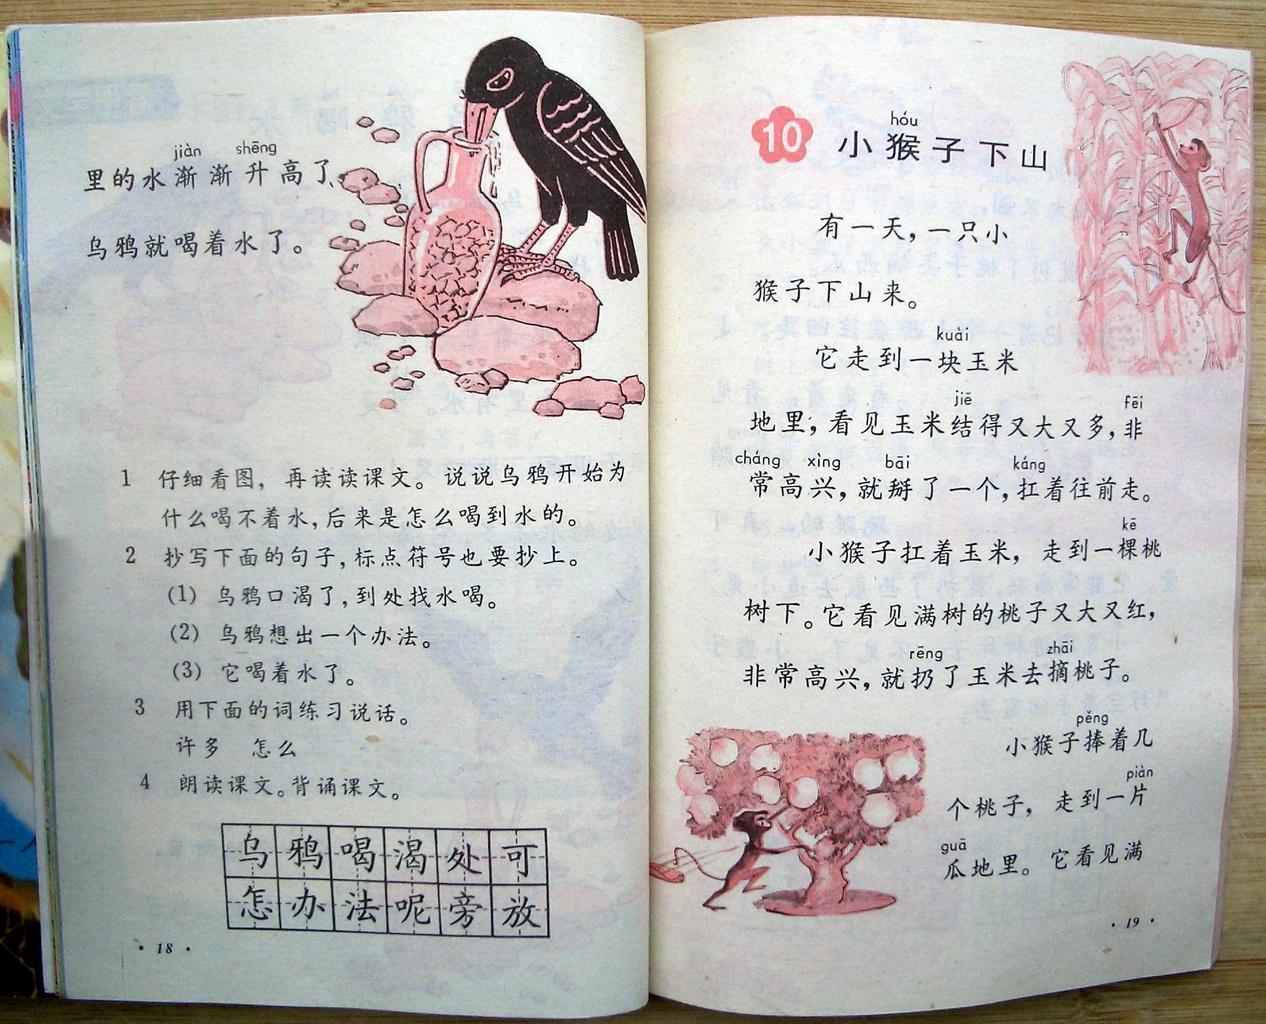 jiàn shēng
里的水渐渐升高了，
乌鸦就喝着水了。
1 仔细看图，再读读课文。说说乌鸦开始为
什么喝不着水，后来是怎么喝到水的。
2 抄写下面的句子，标点符号也要抄上。
(1) 乌鸦口渴了，到处找水喝。
(2) 乌鸦想出一个办法。
(3) 它喝着水了。
3 用下面的词练习说话。
许多 怎么
4 朗读课文。背诵课文。
乌鸦喝渴处可
怎办法呢旁放
· 18 ·
hóu
10 小猴子下山
有一天，一只小
猴子下山来。
kuài
它走到一块玉米
jiē fēi
地里，看见玉米结得又大又多，非
cháng xìng bāi káng
常高兴，就掰了一个，扛着往前走。
kē
小猴子扛着玉米，走到一棵桃
树下。它看见满树的桃子又大又红，
rēng zhāi
非常高兴，就扔了玉米去摘桃子。
pěng
小猴子捧着几
piàn
个桃子，走到一片
guā
瓜地里。它看见满
· 19 ·